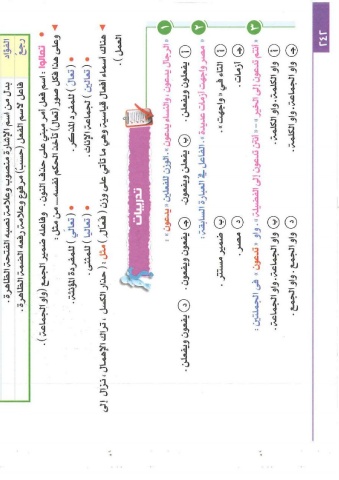 الفؤاد بدل من اسم الإشارة منصوب وعلامة نصبه الفتحة الظاهرة .
رجع فاعل لاسم الفعل مرفوع وعلامة رفعه الضمة الظاهرة .
◄ تعالوا : اسم فعل أمر مبني على حذف النون . وفاعله ضمير الجمع ( واو الجماعة ) .
◄ وعلى هذا فكل صور (تعال) تأخذ الحكم نفسه من مثل :
• ( تعال ) للمفرد المذكر . • ( تعالي ) للمفردة المؤنثة .
• ( تعالين ) لجماعة الإناث . • ( تعاليا ) للمثنى .
◄ هناك أسماء أفعال قياسية وهي ما تأتي على وزن ( فعال ) مثل : ( حذار الكسل . تراك الإهمال . نزال إلى
العمل ) .
تدريبات
١ « الرجال يدعون ، والنساء يدعون » . الوزن للفعلين « يدعون » :
أ يفعلون ويفعلن . ب يفعلن ويفعون . ج يفعون ويفعون . د يفعون ويفعلن .
٢ « مصر واجهت أزمات عديدة » . الفاعل في العبارة السابقة :
أ التاء في « واجهت » . ب ضمير مستتر .
ج أزمات . د مصر .
٣ « أنتم تدعون إلى الخير » – « أنتن تدعون إلى الفضيلة » . واو « تدعون » في الجملتين :
أ واو الكلمة ، واو الكلمة . ب واو الجماعة ، واو الجماعة .
ج واو الجماعة ، واو الكلمة . د واو الجمع ، واو الجمع .
٢٤٢